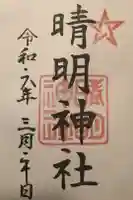 晴明神社
令和六年三月二十日